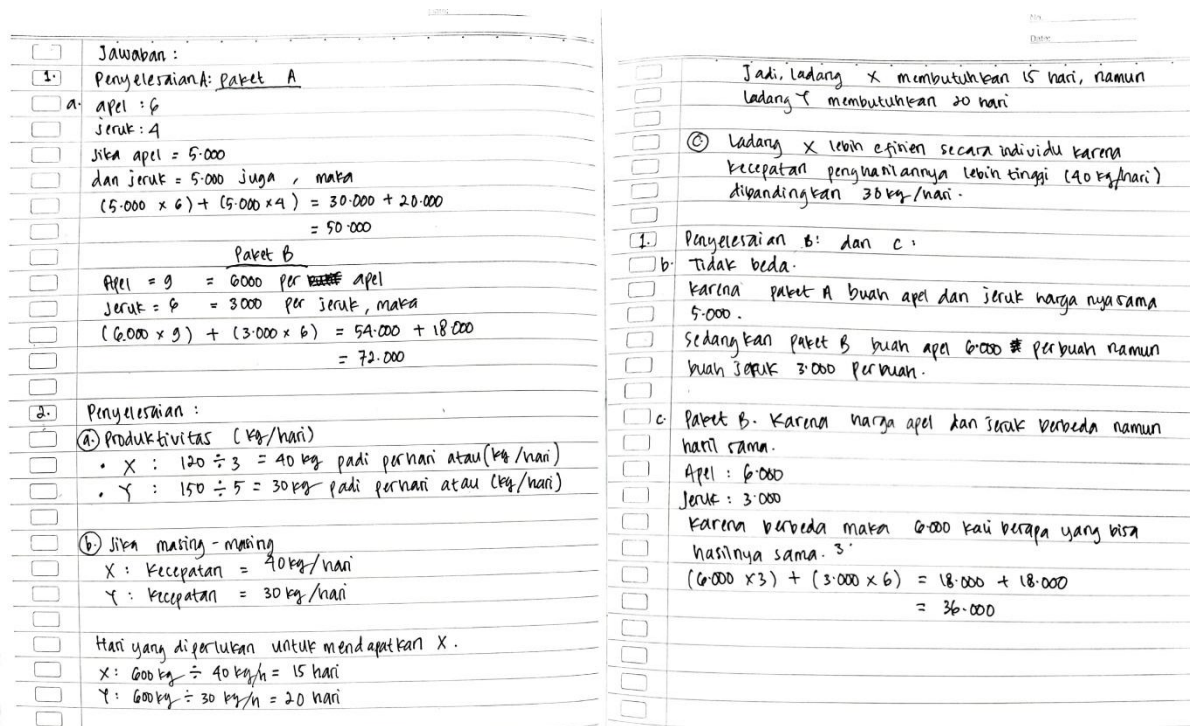 Jawaban :
1. Penyelesaian A: Paket A
a. apel : 6
jeruk : 4
Jika apel = 5.000
dan jeruk = 5.000 juga , maka
(5.000 x 6) + (5.000 x 4) = 30.000 + 20.000
= 50.000
Paket B
Apel = 9 = 6000 per apel
Jeruk = 6 = 3000 per jeruk, maka
(6.000 x 9) + (3.000 x 6) = 54.000 + 18.000
= 72.000
2. Penyelesaian :
a. Produktivitas (kg/hari)
• X : 120 ÷ 3 = 40 kg padi perhari atau (kg/hari)
• Y : 150 ÷ 5 = 30 kg padi perhari atau (kg/hari)
b. Jika masing-masing
X : Kecepatan = 40 kg/hari
Y : Kecepatan = 30 kg/hari
Hari yang diperlukan untuk mendapatkan X.
X : 600 kg ÷ 40 kg/h = 15 hari
Y : 600 kg ÷ 30 kg/h = 20 hari
No
Date
Jadi, ladang X membutuhkan 15 hari, namun
ladang Y membutuhkan 20 hari
c Ladang X lebih efisien secara individu karena
kecepatan penghasilannya lebih tinggi (40 kg/hari)
dibandingkan 30 kg/hari.
1. Penyelesaian B: dan C :
b. Tidak beda.
karena paket A buah apel dan jeruk harga nya sama
5.000.
Sedangkan paket B buah apel 6.000 perbuah namun
buah jeruk 3.000 perbuah.
c. Paket B. Karena harga apel dan jeruk berbeda namun
hasil sama.
Apel : 6.000
Jeruk : 3.000
Karena berbeda maka 6.000 kali berapa yang bisa
hasilnya sama. 3
(6.000 x 3) + (3.000 x 6) = 18.000 + 18.000
= 36.000